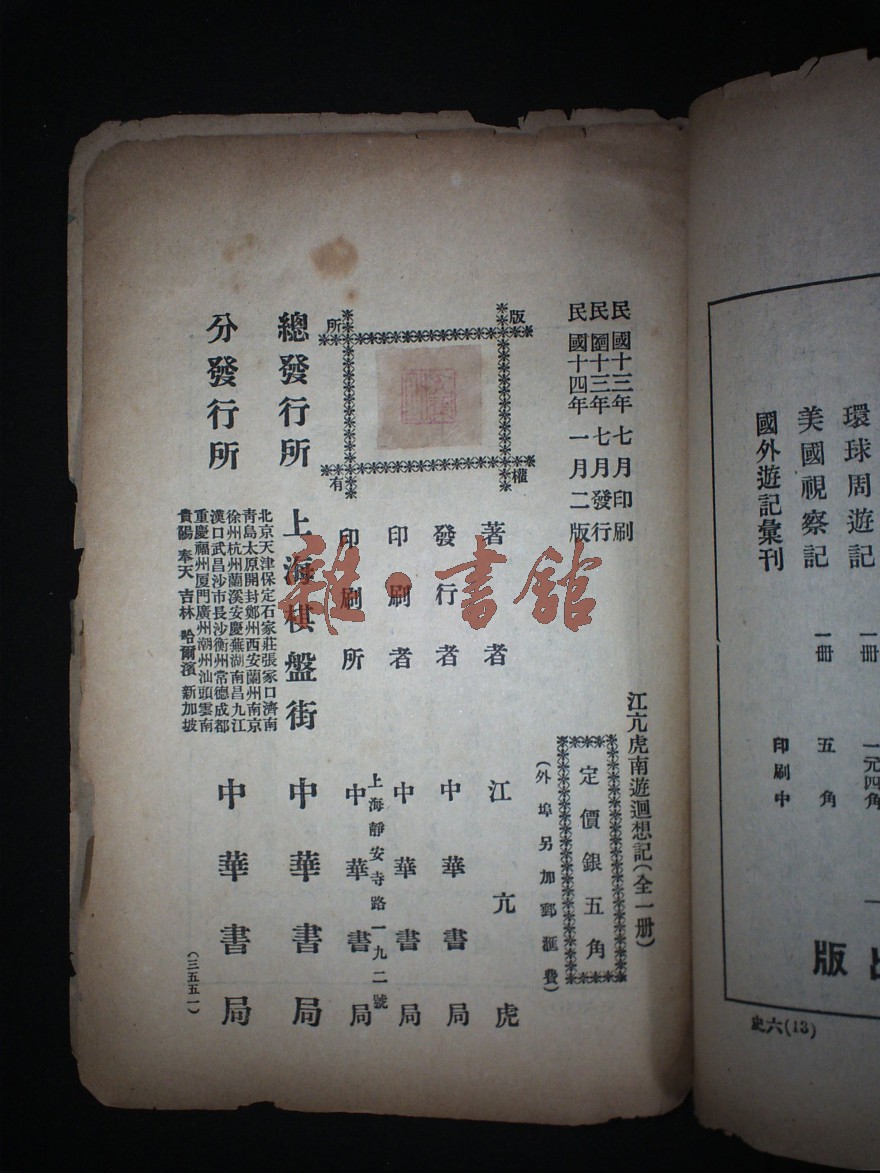 民國十三年七月印刷
民國十三年七月發行
民國十四年一月二版
江亢虎南遊迴想記(全一册)
定價銀五角
(外埠另加郵匯費)
版權所有
著者 江亢虎
發行者 中華書局
印刷者 中華書局
印刷所 上海靜安寺路一九二號 中華書局
總發行所 上海棋盤街 中華書局
分發行所
北京天津保定石家莊張家口濟南
靑島太原開封鄭州西安蘭州南京
徐州杭州蘭溪安慶蕪湖南昌九江
漢口武昌沙市長沙衡州常德成都
重慶福州厦門廣州潮州汕頭雲南
貴陽 奉天 吉林 哈爾濱 新加坡
中華書局
(三五五一)
雜·書舘
環球周遊記 一册 一元四角
美國視察記 一册 五角
國外遊記彙刊 印刷中
版
史六(13)